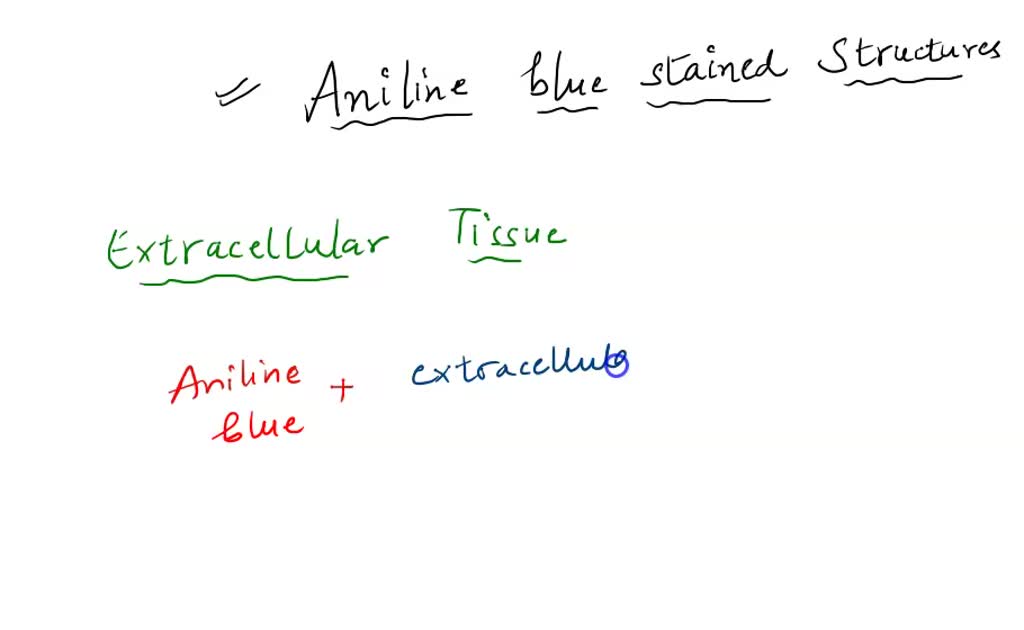 Aniline blue stained Structures
Extracellular Tissue
Aniline + extracellula
blue